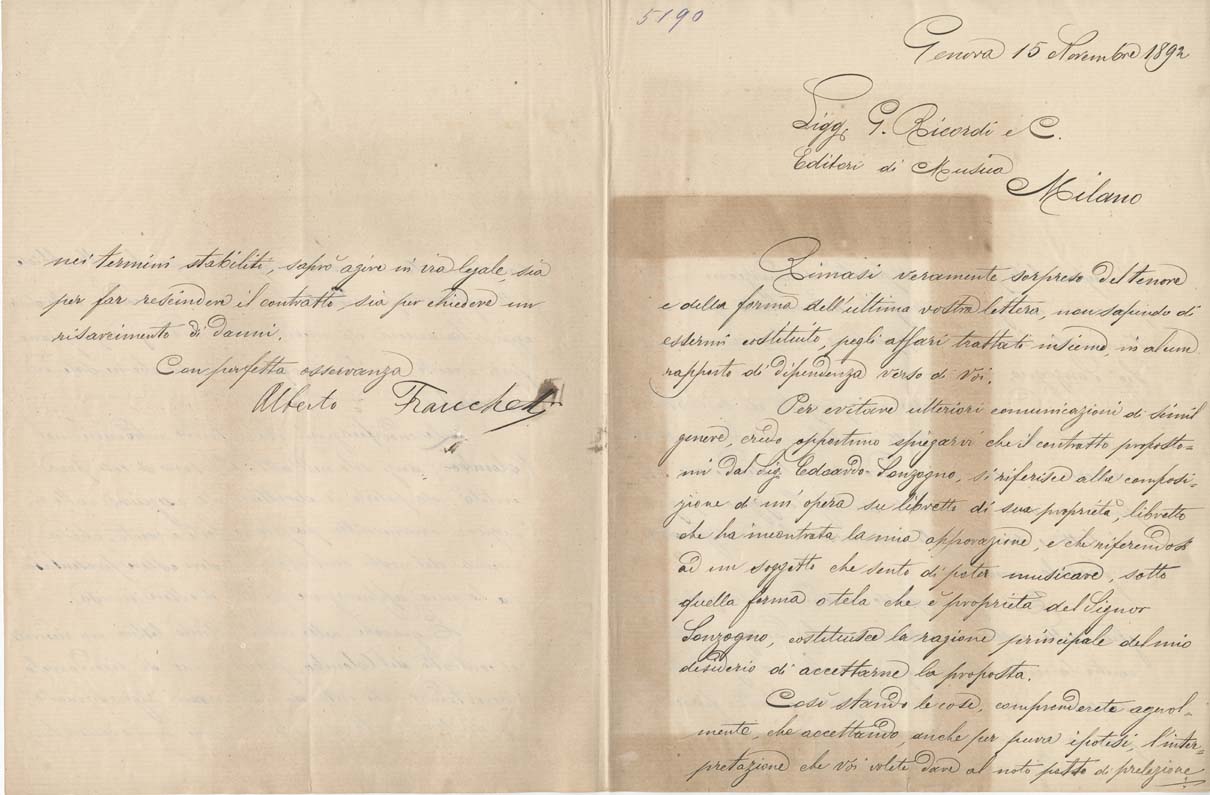 5190
Genova 15 Novembre 1892
Sigg. G. Ricordi e C.
Editori di Musica
Milano
Rimasi veramente sorpreso del tenore
e della forma dell'ultima vostra lettera, non sapendo di
essermi costituito, pegli affari trattati insieme, in alcun
rapporto di dipendenza verso di voi.
Per evitare ulteriori comunicazioni di simil
genere, credo opportuno spiegarvi che il contratto proposto=
mi dal Sig. Edoardo Sonzogno, si riferisce alla composi=
zione di un'opera su libretto di sua proprietà, libretto
che ha incontrata la mia approvazione, e che riferendosi
ad un soggetto che sento di poter musicare, sotto
quella forma o tela che è proprietà del Signor
Sonzogno, costituisce la ragione principale del mio
desiderio di accettarne la proposta.
Così stando le cose, comprenderete agevol=
mente, che accettando, anche per pura ipotesi, l'inter=
pretazione che voi volete dare al noto patto di prelezione
nei termini stabiliti, saprò agire in via legale, sia
per far rescindere il contratto, sia per chiedere un
risarcimento di danni.
Con perfetta osservanza
Alberto Franchetti